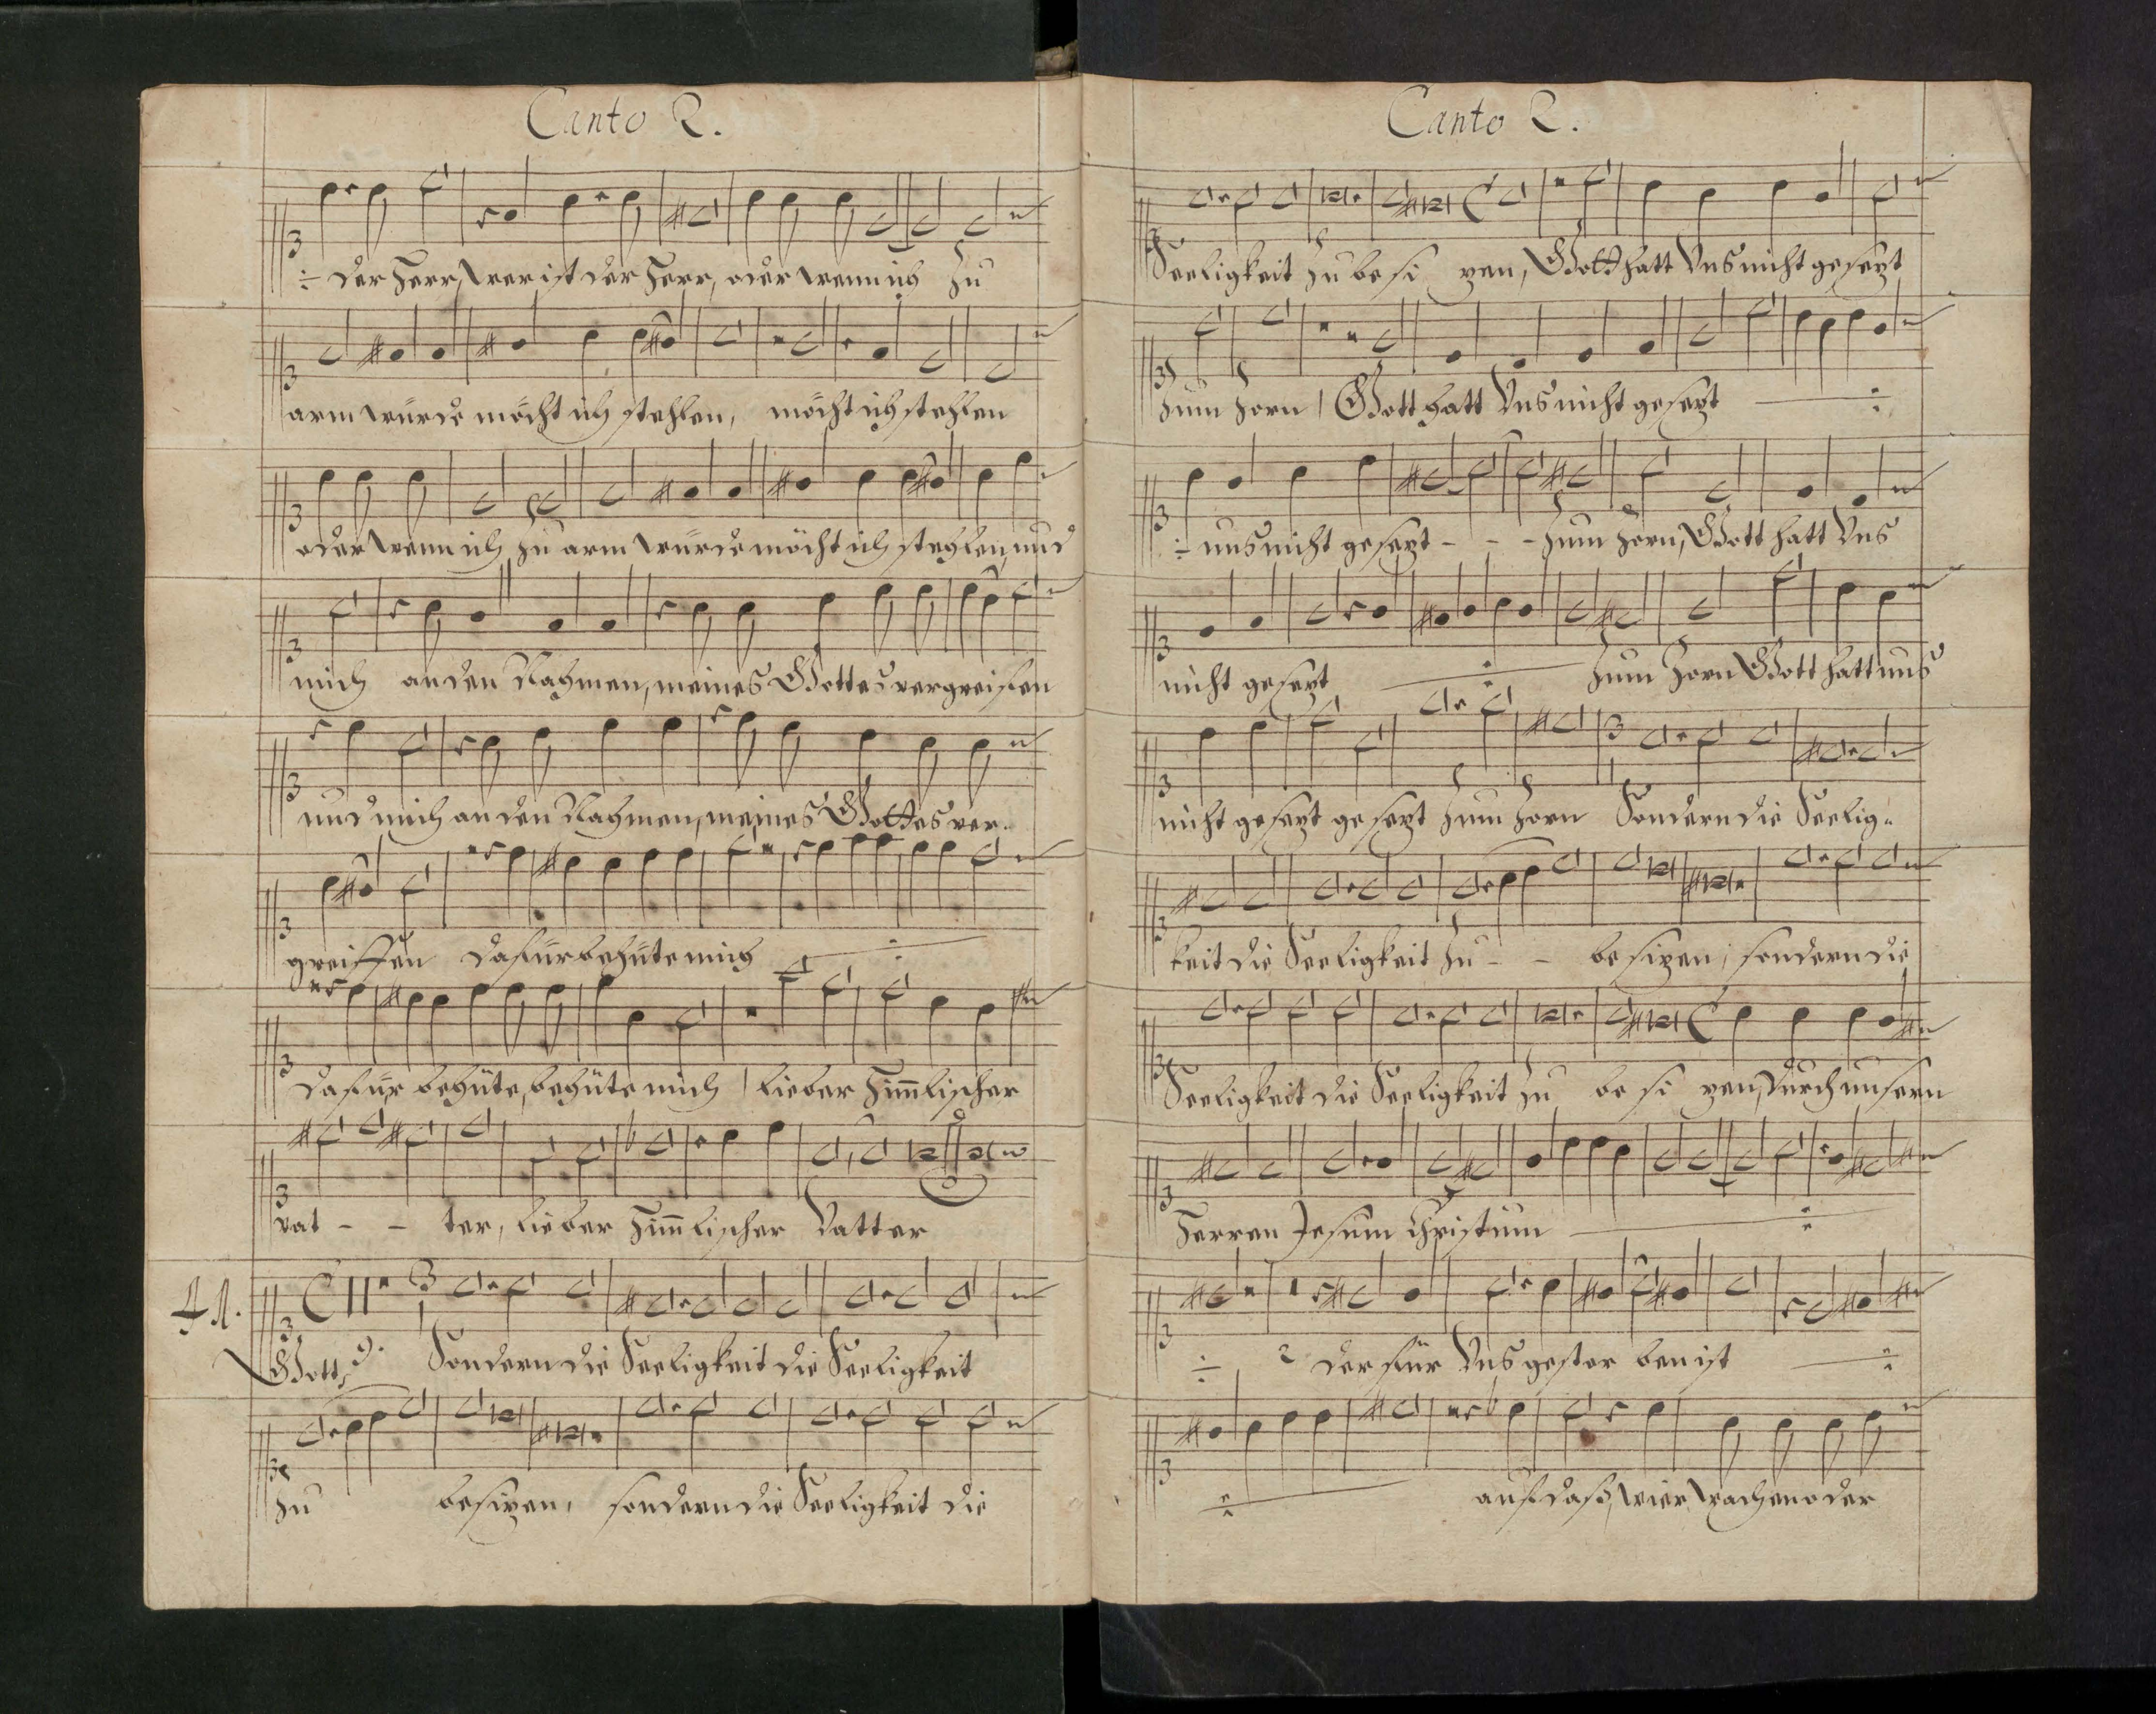 Canto 2.
÷ der Herr, wer ist der Herr, oder wenn ich zu
arm würde möcht ich stehlen, möcht ich stehlen
oder wenn ich zu arm würde möcht ich stehlen, und
mich an den Nahmen, meines Gottes vergreifen
und mich an den Nahmen, meines Gottes ver-
greiffen dafür behüte mich ÷
dafür behüte, behüte mich / lieber Himlischer
vat - - ter, lieber Himlischer Vatter
Gott, Sondern die Seeligkeit die Seeligkeit
zu besizen, sondern die Seeligkeit die
Canto 2.
Seeligkeit zu besi zen, Gott hatt Uns nicht gesezt
zum Zorn / Gott hatt Uns nicht gesezt ÷
÷ uns nicht gesezt - - - zum Zorn, Gott hatt Uns
nicht gesezt ÷ zum Zorn Gott hatt uns
nicht gesezt gesezt zum Zorn Sondern die Seelig-
keit die Seeligkeit zu - - besizen, sondern die
Seeligkeit die Seeligkeit zu be si zen, durch unsern
Herren Jesum Christum ÷
÷ der für Uns gestor ben ist ÷
÷ auf daß, wier wachen oder